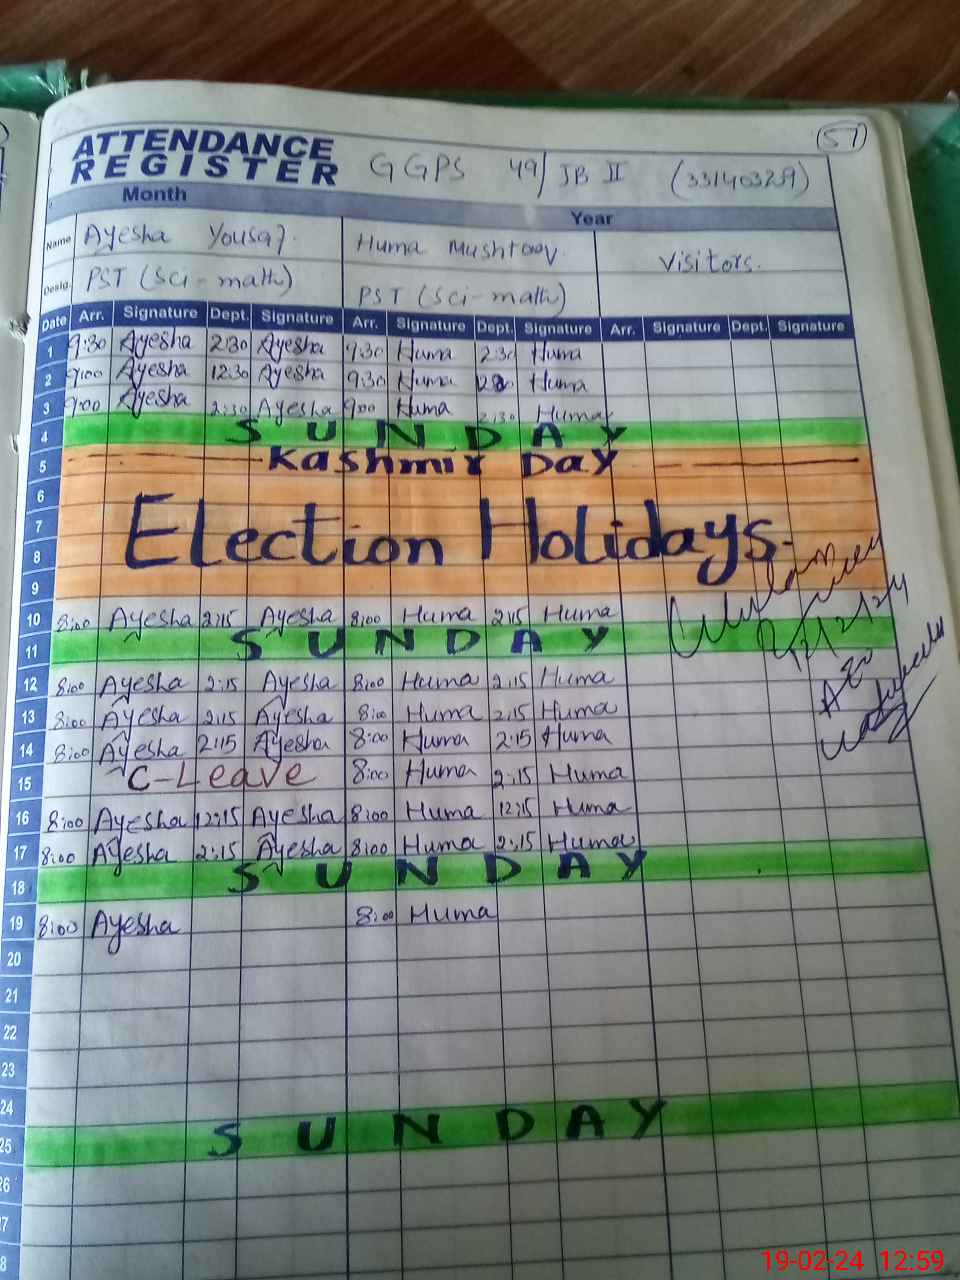 57
ATTENDANCE
REGISTER GGPS 49/JB II (33140329)
Month Year
Name Ayesha Yousaf. Huma Mushtaq. Visitors.
Desig. PST (Sci-math) PST (Sci-math)
Date Arr. Signature Dept. Signature Arr. Signature Dept. Signature Arr. Signature Dept. Signature
1 9:30 Ayesha 2:30 Ayesha 9:30 Huma 2:30 Huma
2 9:00 Ayesha 12:30 Ayesha 9:30 Huma Huma
3 9:00 Ayesha 2:30 Ayesha 9:00 Huma 2:30 Huma
4 SUNDAY
5 Kashmir Day
6
7 Election Holidays.
8
9
10 8:00 Ayesha 2:15 Ayesha 8:00 Huma 2:15 Huma
11 SUNDAY
12/2/24
AEO
12 8:00 Ayesha 2:15 Ayesha 8:00 Huma 2:15 Huma
13 8:00 Ayesha 2:15 Ayesha 8:00 Huma 2:15 Huma
14 8:00 Ayesha 2:15 Ayesha 8:00 Huma 2:15 Huma
15 C-Leave 8:00 Huma 2:15 Huma
16 8:00 Ayesha 12:15 Ayesha 8:00 Huma 12:15 Huma
17 8:00 Ayesha 2:15 Ayesha 8:00 Huma 2:15 Huma
18 SUNDAY
19 8:00 Ayesha 8:00 Huma
20
21
22
23
24
25 SUNDAY
26
27
8
19-02-24 12:59